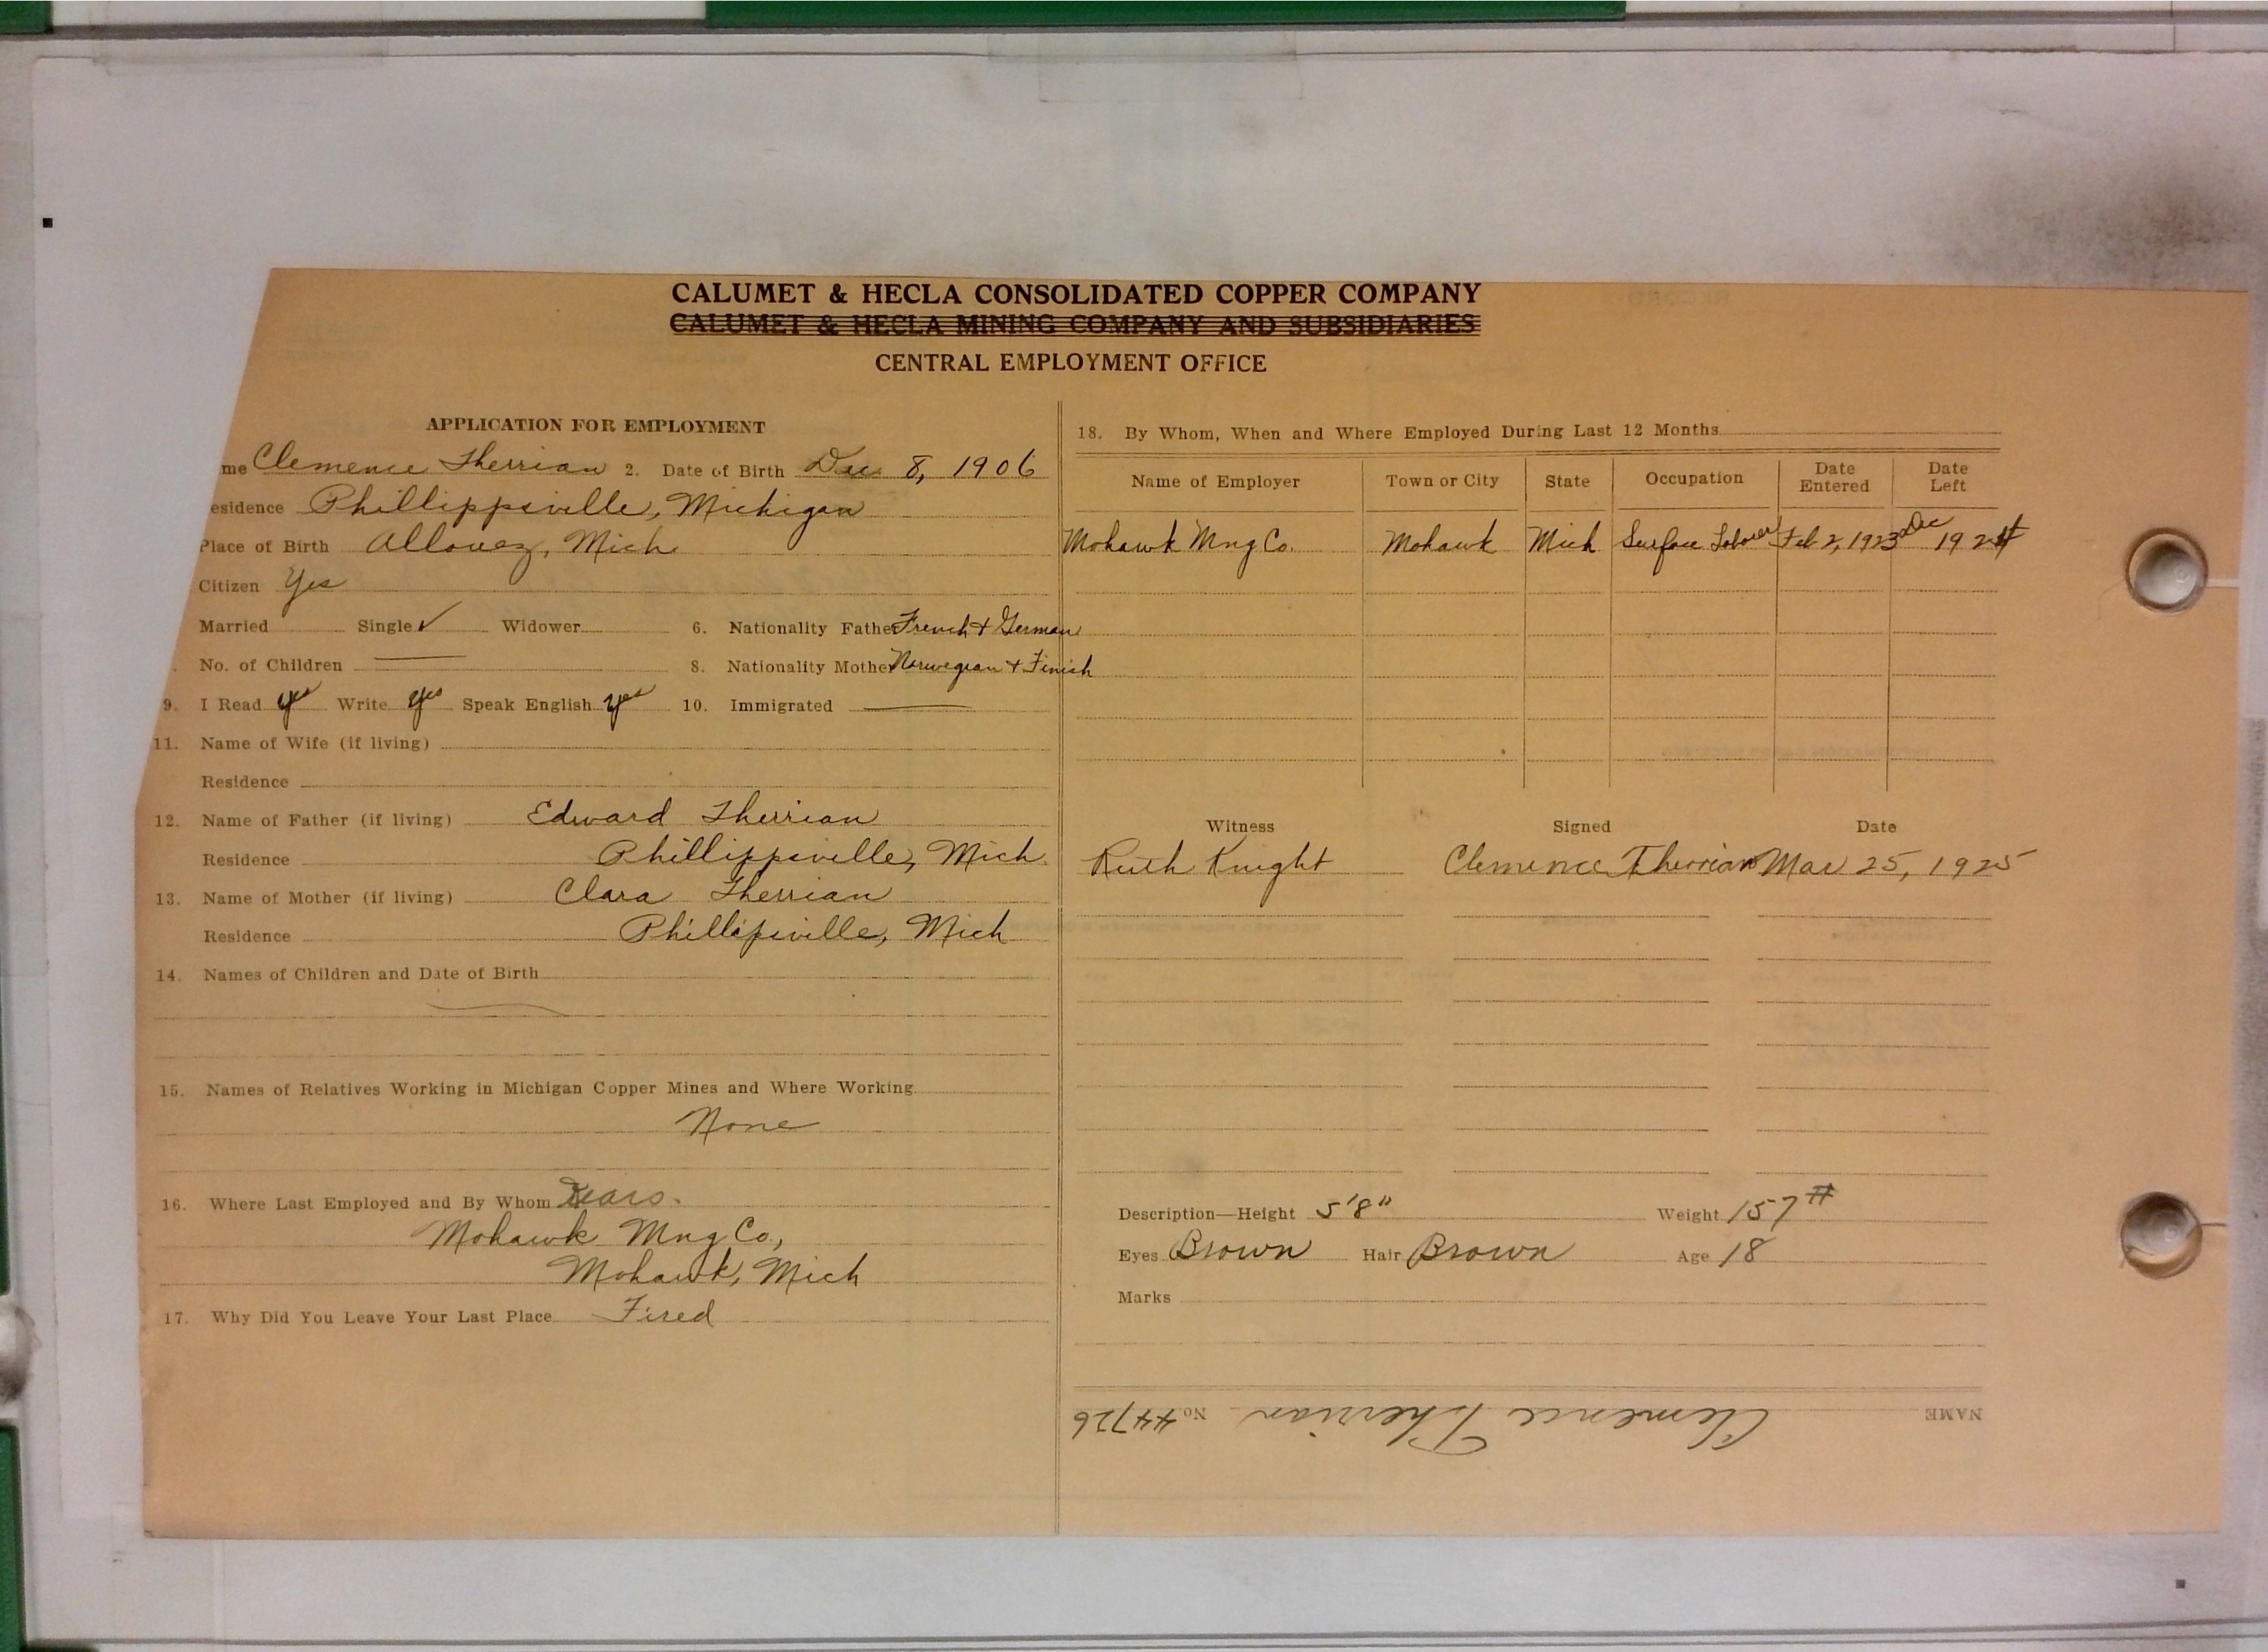 CALUMET & HECLA CONSOLIDATED COPPER COMPANY
CALUMET & HECLA MINING COMPANY AND SUBSIDIARIES
CENTRAL EMPLOYMENT OFFICE
APPLICATION FOR EMPLOYMENT
me Clemence Therrian 2. Date of Birth Dec 8, 1906
esidence Phillippsville, Michigan
Place of Birth Allouez, Mich
Citizen Yes
Married Single ✓ Widower 6. Nationality Father French + German
No. of Children — 8. Nationality Mother Norwegian + Finish
9. I Read yes Write yes Speak English yes 10. Immigrated —
11. Name of Wife (if living)
Residence
12. Name of Father (if living) Edward Therrian
Residence Phillippsville, Mich.
13. Name of Mother (if living) Clara Therrian
Residence Phillipsville, Mich
14. Names of Children and Date of Birth
15. Names of Relatives Working in Michigan Copper Mines and Where Working
None
16. Where Last Employed and By Whom
Mohawk Mng Co.,
Mohawk, Mich
17. Why Did You Leave Your Last Place Fired
18. By Whom, When and Where Employed During Last 12 Months
Name of Employer Town or City State Occupation Date Entered Date Left
Mohawk Mng Co. Mohawk Mich Surface Laborer Feb 2, 1923 Dec 1924
Witness Signed Date
Ruth Knight Clemence Therrian Mar 25, 1925
Description—Height 5'8" Weight 157#
Eyes Brown Hair Brown Age 18
Marks
NAME Clemence Therrian No 44726